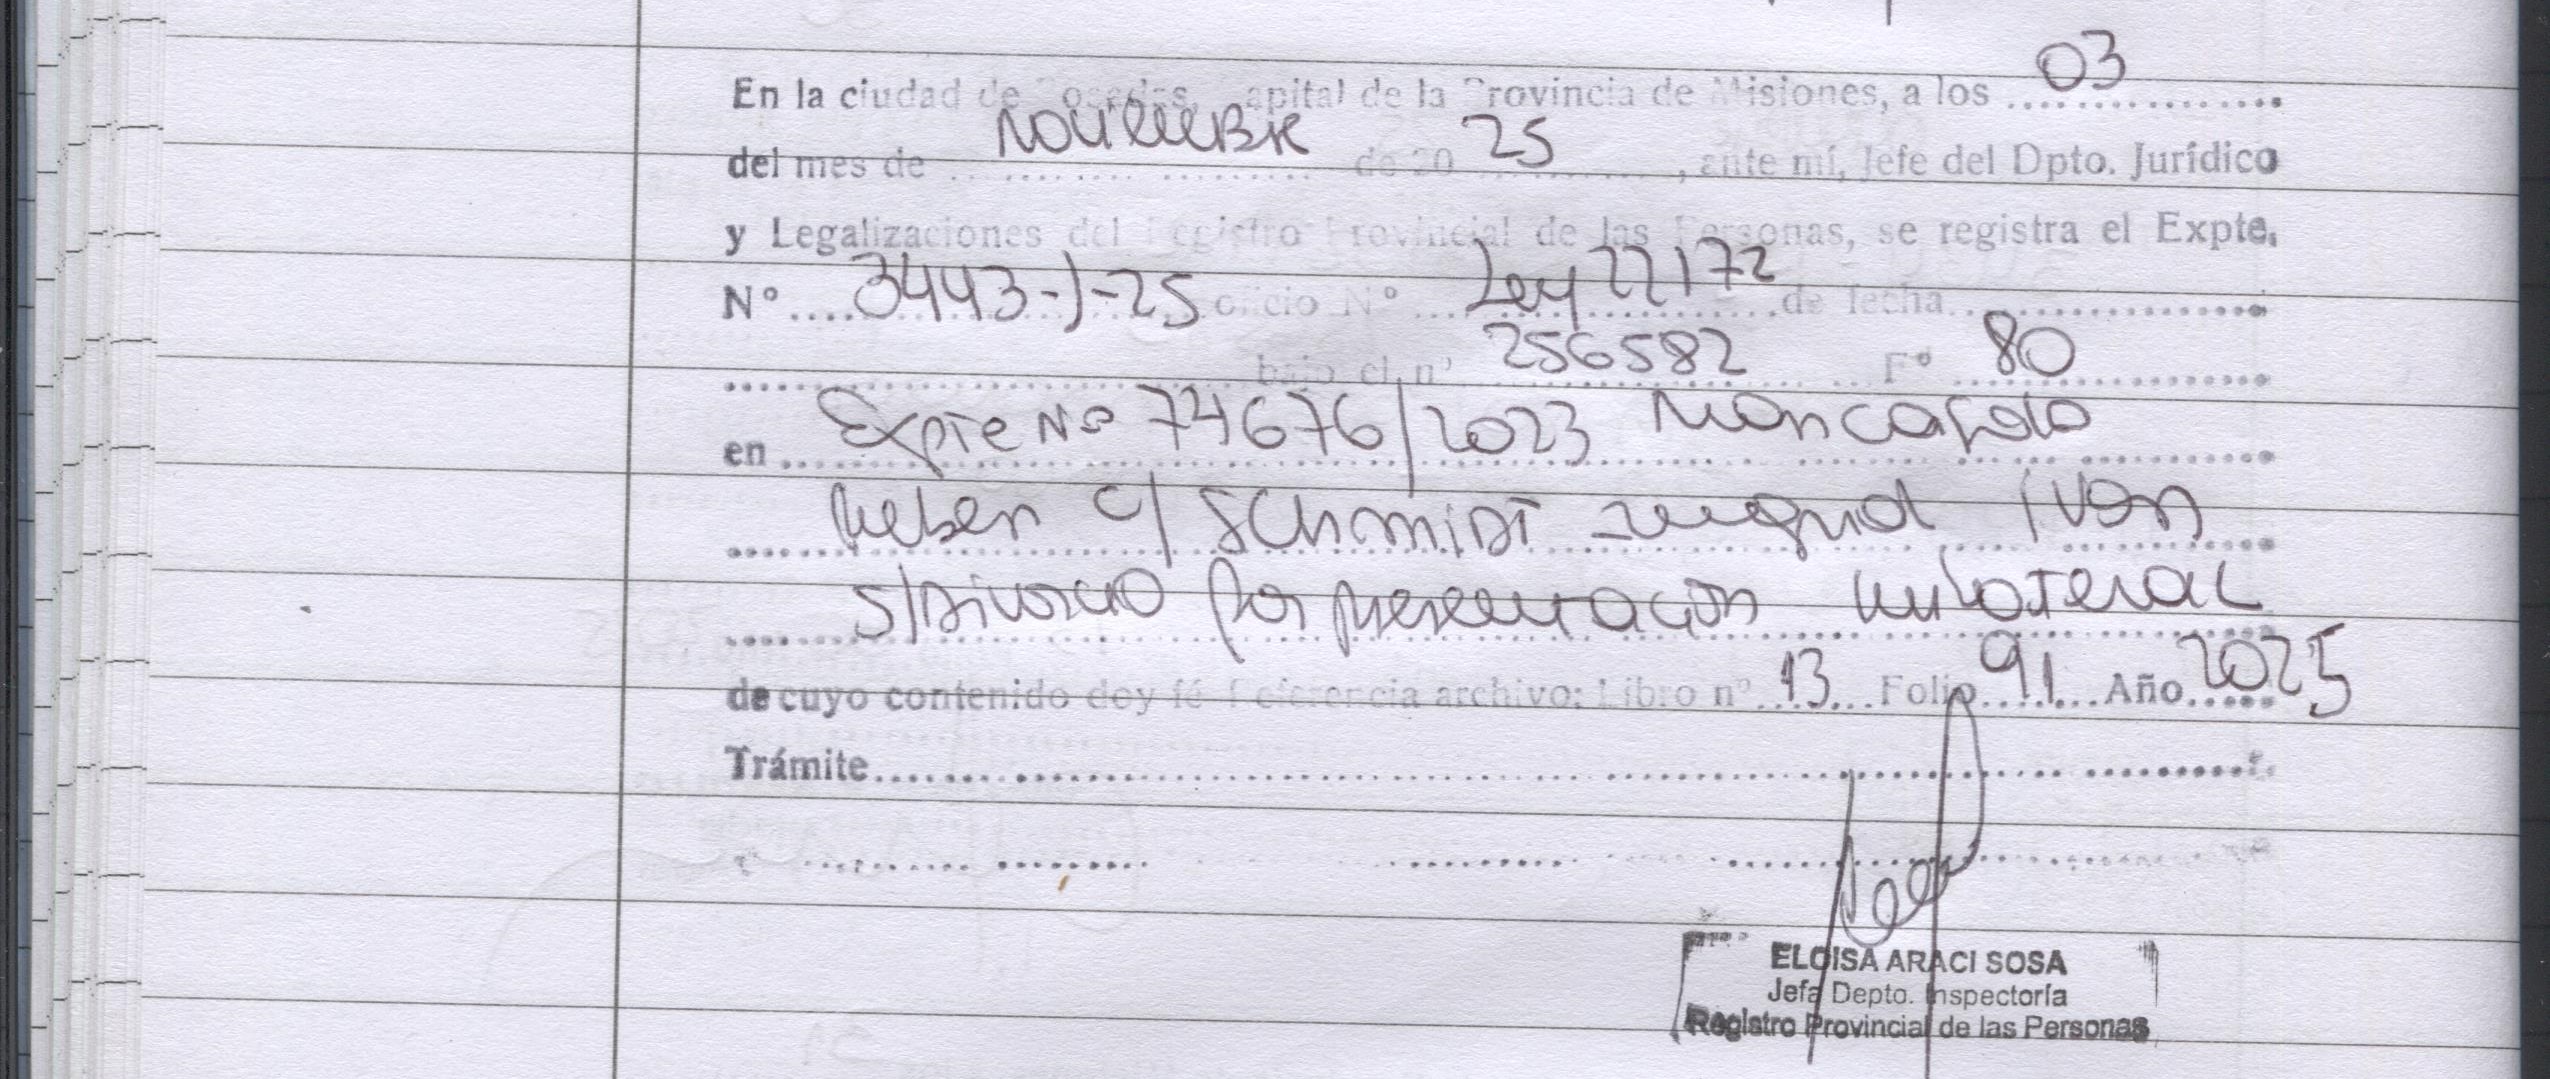 En la ciudad de Posadas, Capital de la Provincia de Misiones, a los 03
del mes de Noviembre de 20 25, ante mí, Jefe del Dpto. Jurídico
y Legalizaciones del Registro Provincial de las Personas, se registra el Expte.
Nº 3443-J-25 oficio Nº Ley 22172 de fecha
bajo el nº 256582 Fº 80
en Expte Nº 74676/2023
c/ Schmidt Ivan
s/Divorcio por presentación unilateral
de cuyo contenido doy fé Referencia archivo: Libro nº 13 Folio 91 Año 2025
Trámite
ELOISA ARACI SOSA
Jefa Depto. Inspectoría
Registro Provincial de las Personas